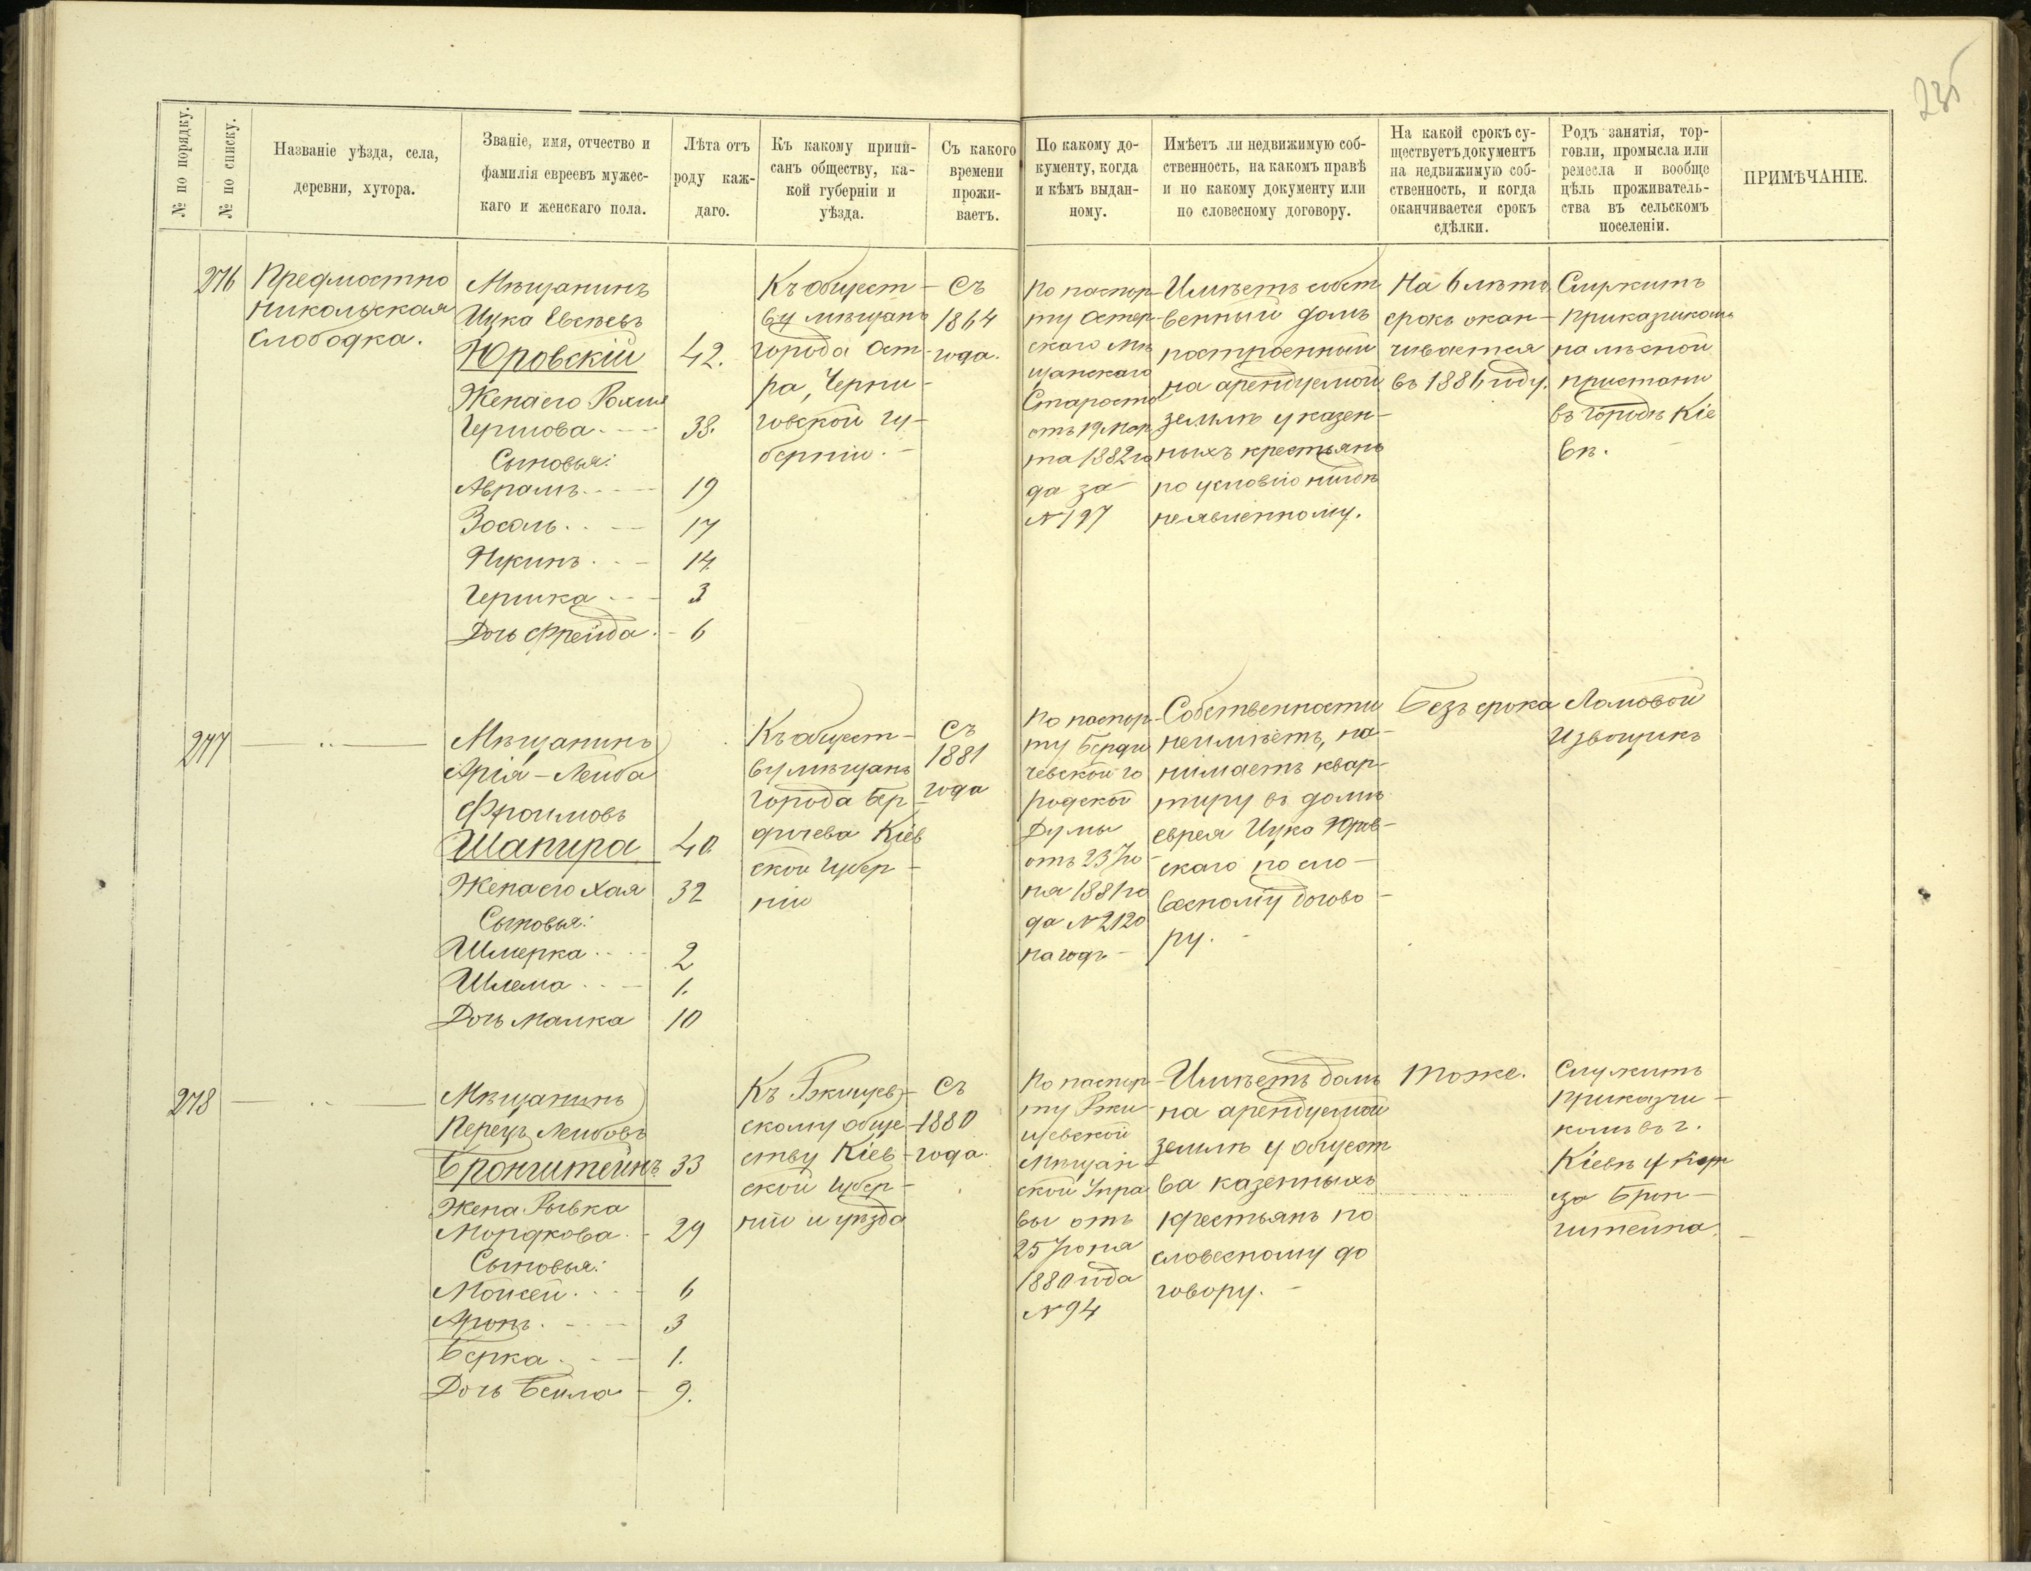 235
№ по порядку.
№ по списку.
Названіе уѣзда, села,
деревни, хутора.
Званіе, имя, отчество и
фамилія евреевъ мужес-
каго и женскаго пола.
Лѣта отъ
роду каж-
даго.
Къ какому припи-
санъ обществу, ка-
кой губерніи и
уѣзда.
Съ какого
времени
прожи-
ваетъ.
По какому до-
кументу, когда
и кѣмъ выдан-
ному.
Имѣетъ ли недвижимую соб-
ственность, на какомъ правѣ
и по какому документу или
по словесному договору.
На какой срокъ су-
ществуетъ документъ
на недвижимую соб-
ственность, и когда
оканчивается срокъ
сдѣлки.
Родъ занятія, тор-
говли, промысла или
ремесла и вообще
цѣль проживатель-
ства въ сельскомъ
поселеніи.
ПРИМѢЧАНІЕ.
276
Предмостно
Никольская
Слободка.
Мѣщанинъ
Ицка Евсѣевъ
Юровскій 42.
Жена его Рохля
Гершова 38.
Сыновья:
Аврамъ 19
Зосаль 17
Нукинъ 14
Гершка 3
Дочь Фрейда 6
Къ общест-
ву мѣщанъ
города Ост-
ра, Черни-
говской гу-
берніи.
Съ
1864
года.
По паспор-
ту Остер-
скаго мѣ
щанскаго
Старосты
отъ 19 Мар
та 1882 го
да за
№ 197
Имѣетъ собст
венный домъ
построенный
на арендуемой
землѣ у казен-
ныхъ крестьянъ
по условію нигдѣ
неявленному.
На 6 лѣтъ
срокъ окан-
чивается
въ 1886 году.
Служитъ
приказчикомъ
на лѣсной
пристани
въ городѣ Кіе
вѣ.
277
Мѣщанинъ
Арія-Лейба
Фроимовъ
Шапира 40
Жена его Хая 32
Сыновья:
Шмерка 2
Шлема 1.
Дочь Малка 10
Къ общест-
ву мѣщанъ
города Бер
дичева Кіев
ской Губер-
ніи
Съ
1881
года
По паспор-
ту Берди
чевской го
родской
Думы
отъ 23 Ію
ня 1881 го
да № 2120
на годъ
Собственности
неимѣетъ, на-
нимаетъ квар-
тиру въ домѣ
еврея Ицка Юров-
скаго по сло-
весному догово-
ру.
Безъ срока
Ломовой
Извощикъ
278
Мѣщанинъ
Перецъ Лейбовъ
Бронштейнъ 33
Жена Рывка
Мордкова 29
Сыновья:
Мойсей 6
Аронъ 3
Берка 1.
Дочь Бейла 9.
Къ Ржищев-
скому обще-
ству Кіев-
ской Губер-
ніи и уѣзда
Съ
1880
года.
По паспор
ту Ржи
щевской
Мѣщан
ской Упра
вы отъ
25 Іюня
1880 года
№ 94
Имѣетъ домъ
на арендуемой
землѣ у общест
ва казенныхъ
крестьянъ по
словесному до
говору.
Тоже.
Служитъ
приказчи-
комъ въ г.
Кіевѣ у куп
ца Брон-
штейна.